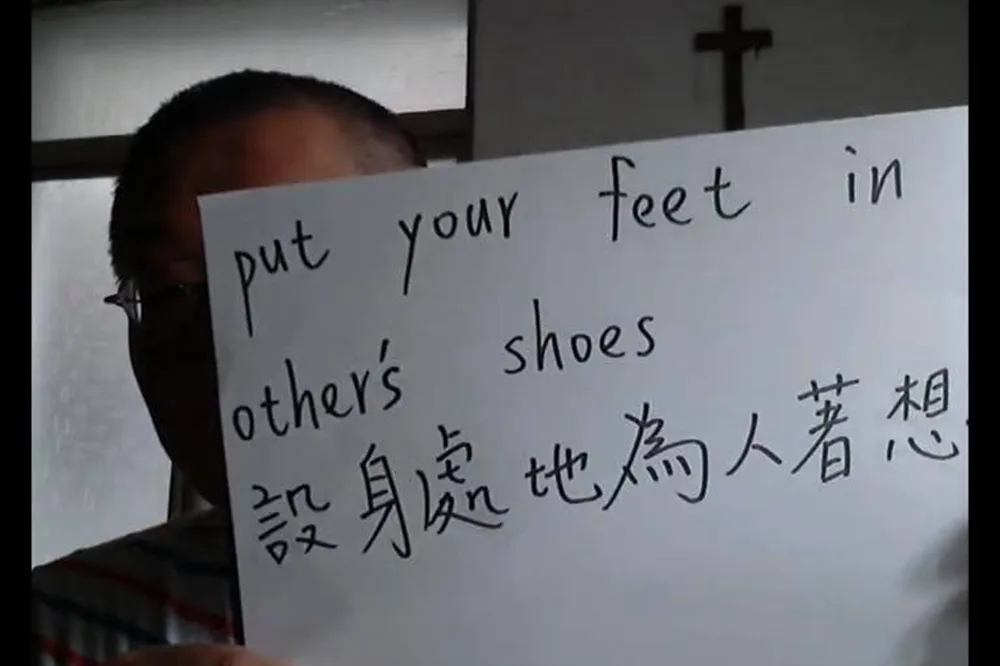 put your feet in
other's shoes
設身處地為人著想